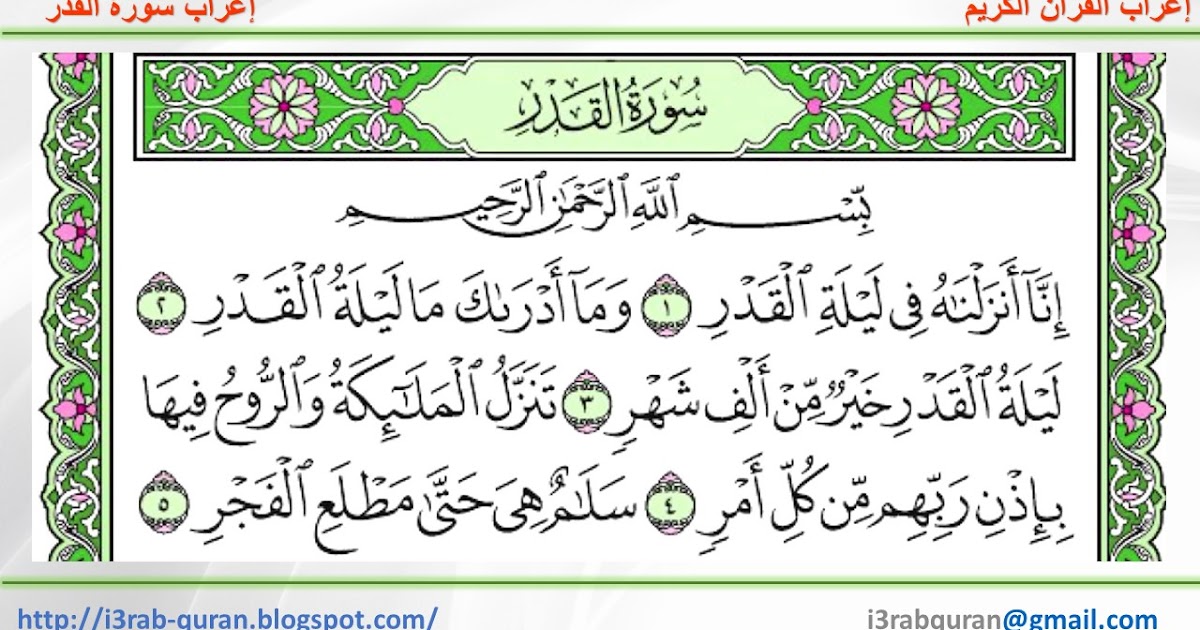 إعراب القرآن الكريم
إعراب سورة القدر
سُورَةُ الْقَدْرِ
بِّسْمِ ٱللَّهِ ٱلرَّحْمَٰنِ ٱلرَّحِيمِ
إِنَّآ أَنزَلْنَٰهُ فِى لَيْلَةِ ٱلْقَدْرِ ١ وَمَآ أَدْرَىٰكَ مَا لَيْلَةُ ٱلْقَدْرِ ٢
لَيْلَةُ ٱلْقَدْرِ خَيْرٌ مِّنْ أَلْفِ شَهْرٍ ٣ تَنَزَّلُ ٱلْمَلَٰٓئِكَةُ وَٱلرُّوحُ فِيهَا
بِإِذْنِ رَبِّهِم مِّن كُلِّ أَمْرٍ ٤ سَلَٰمٌ هِىَ حَتَّىٰ مَطْلَعِ ٱلْفَجْرِ ٥
http://i3rab-quran.blogspot.com/
i3rabquran@gmail.com